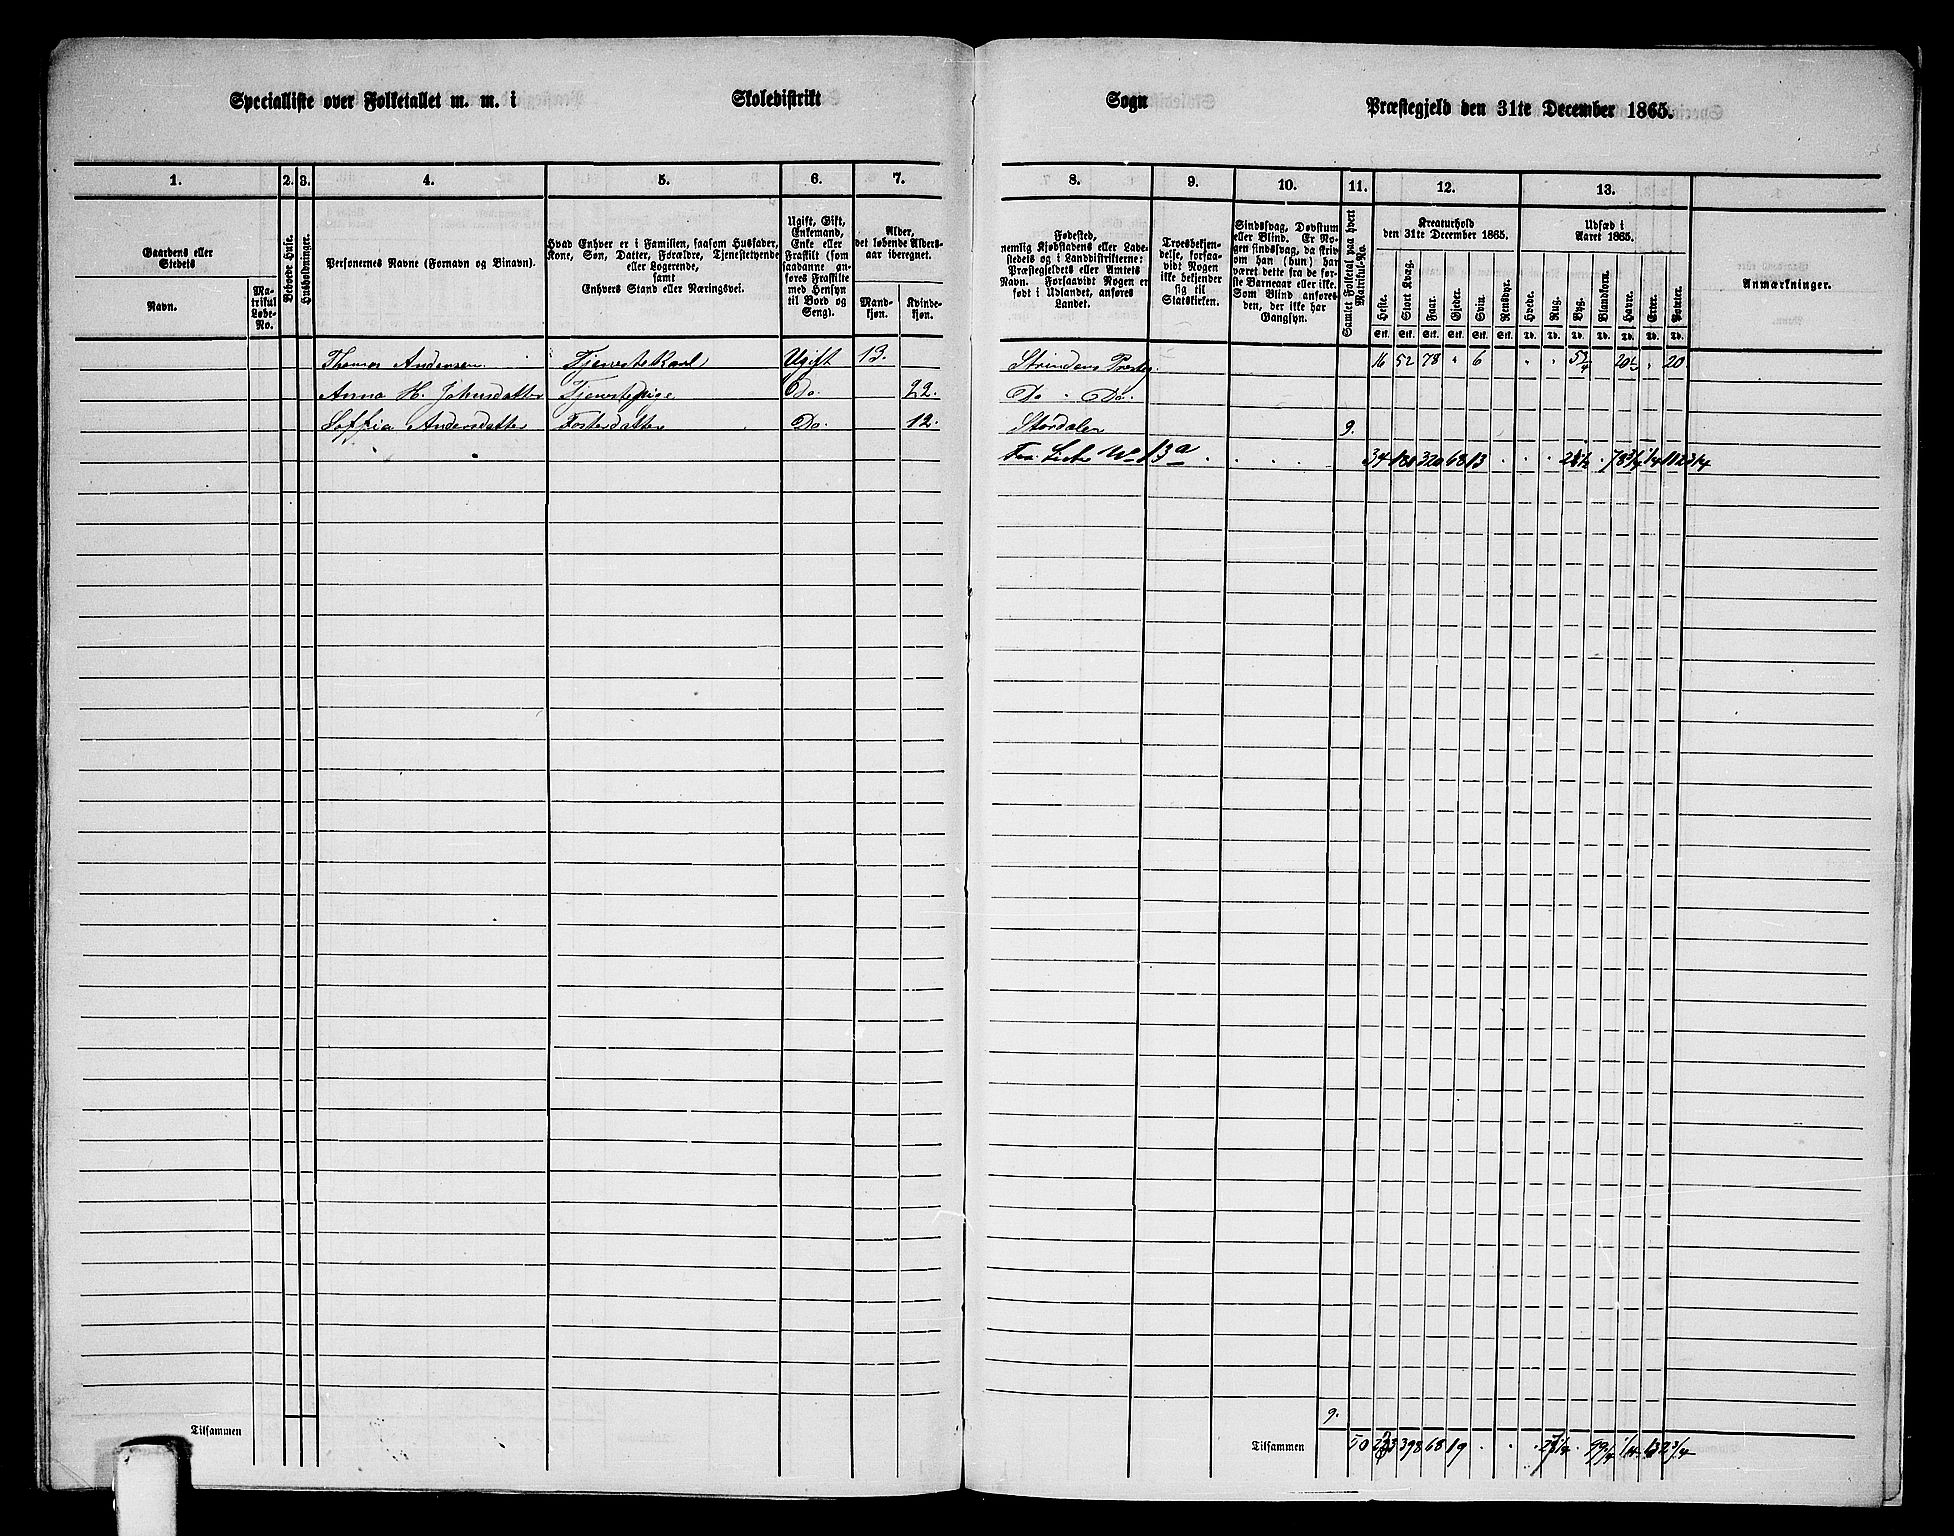 Specialliste over Folketallet m. m. i Skoledistrikt Sogn Præstegjeld den 31te December 1865.
1. 2. 3. 4. 5. 6. 7. 8. 9. 10. 11. 12. 13.
Gaardens eller Stedets
Navn.
Matrikul Løbe-No.
Beboede Huse.
Husholdninger.
Personernes Navne (Fornavn og Binavn).
Hvad Enhver er i Familien, saasom Husfader, Kone, Søn, Datter, Forældre, Tjenestetyende eller Logerende,
samt
Enhvers Stand eller Næringsvei.
Ugift, Gift, Enkemand, Enke eller Fraskilt (som saadanne anføres Fraskilte med Hensyn til Bord og Seng).
Alder, det løbende Alders-aar iberegnet.
Mand-kjøn.
Kvinde-kjøn.
Fødested,
nemlig Kjøbstadens eller Ladestedets og i Landdistrikterne: Præstegjeldets eller Amtets Navn. Forsaavidt Nogen er født i Udlandet, anføres Landet.
Troesbekjendelse, forsaavidt Nogen ikke bekjender sig til Statskirken.
Sindssvag, Døvstum eller Blind. Er Nogen sindssvag, da skrives om han (hun) har været dette fra de første Barneaar eller ikke. Som Blind anføres den, der ikke har Gangsyn.
Samlet Folketal paa hvert Matrikul-No.
Kreaturhold
den 31te December 1865.
Heste. Stort Kvæg. Faar. Gjeder. Svin. Rensdyr.
Stk. Stk. Stk. Stk. Stk. Stk.
Udsæd i
Aaret 1865.
Hvede. Rug. Byg. Blandkorn. Havre. Erter. Poteter.
Td. Td. Td. Td. Td. Td. Td.
Anmærkninger.
Thomas Andersen Tjenestekarl Ugift 13. Strindens Presteg. 16 52 78 " 6 " " 5 2/4 20½ " 20
Anna H. Johnsdatter Tjenestepige Do. 22. Do. Do.
Soffia Andersdatter Fosterdatter Do. 12. Størdalen 9.
Fra Liste No 13a 34 320 68 13 78 3/4 1/4 112 3/4
9.
Tilsammen Tilsammen 50 398 68 19 99 1/4 1/4 132 3/4